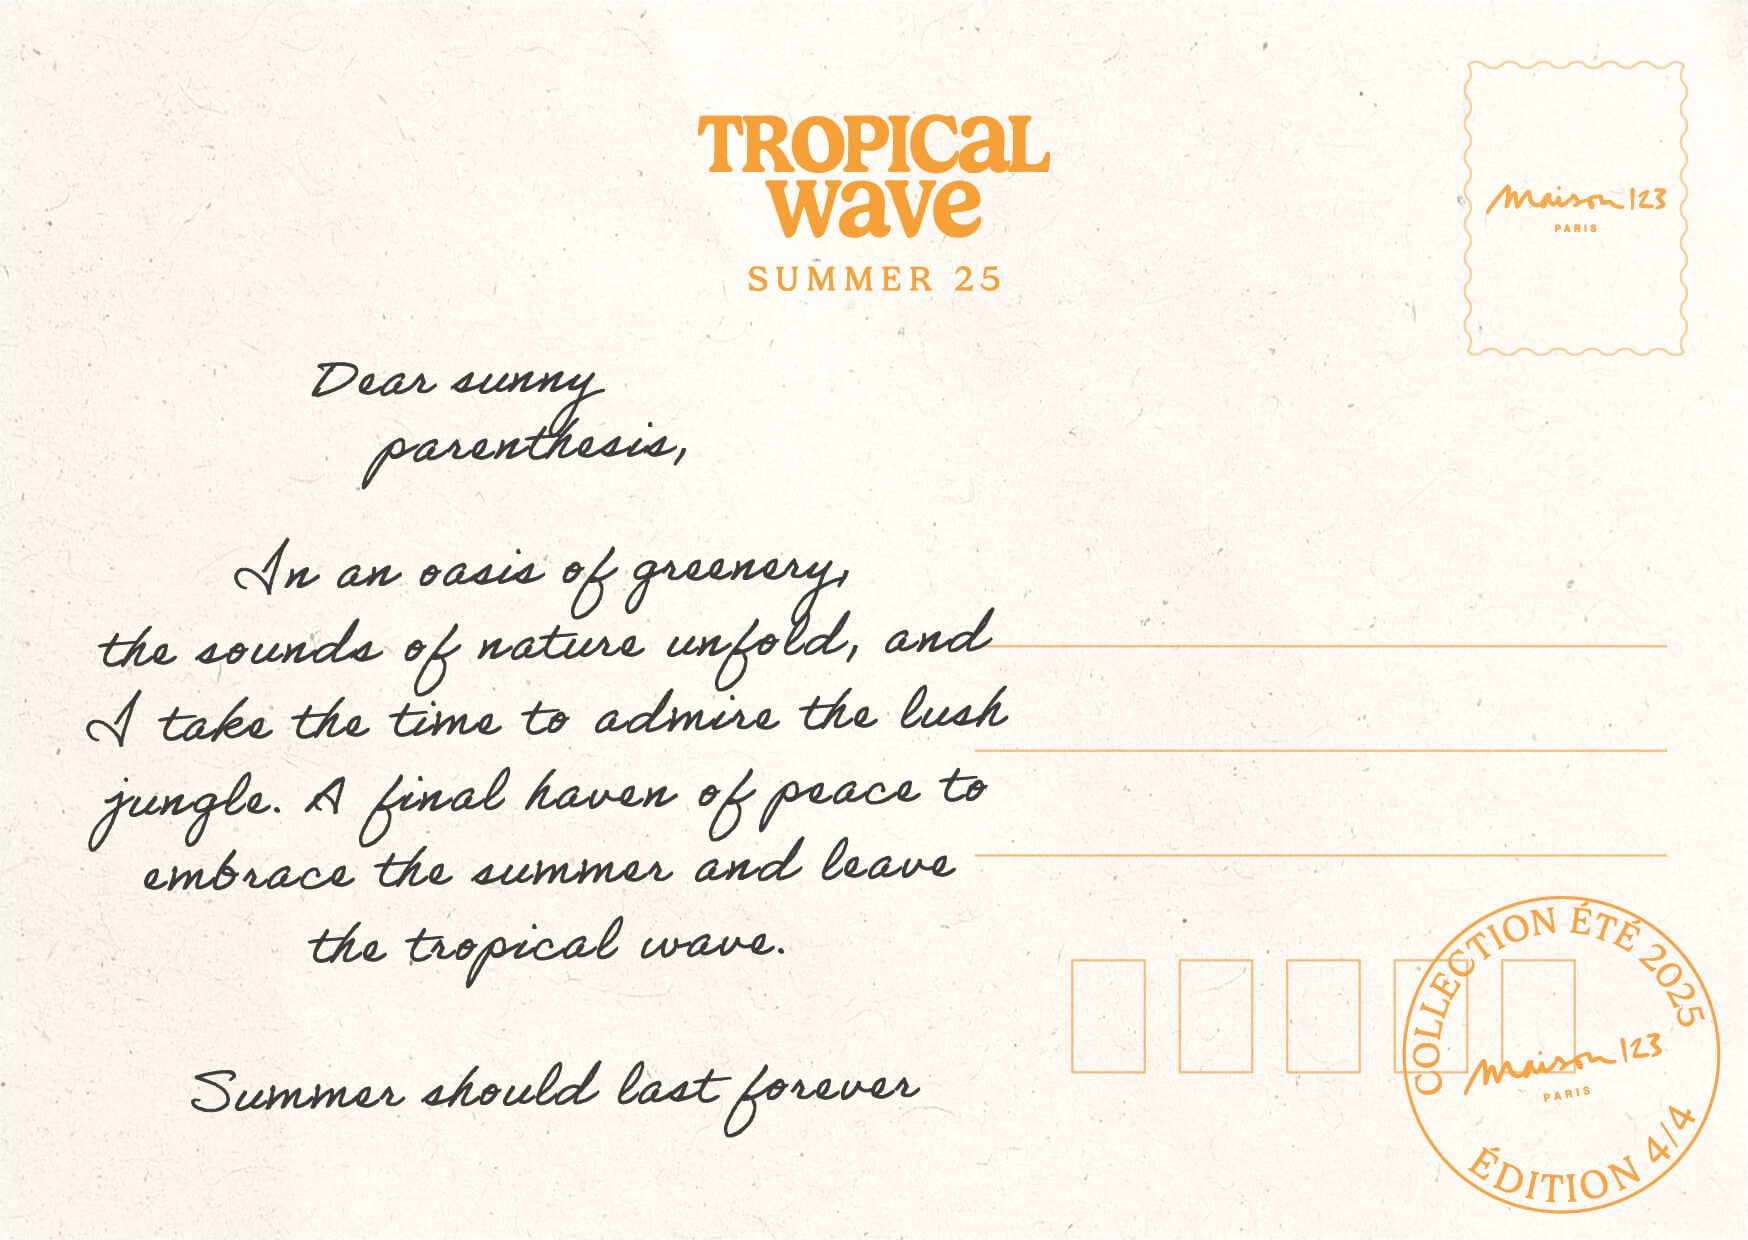 TROPICAL
wave
SUMMER 25
maison 123
PARIS
Dear sunny
parenthesis,
In an oasis of greenery,
the sounds of nature unfold, and
I take the time to admire the lush
jungle. A final haven of peace to
embrace the summer and leave
the tropical wave.
Summer should last forever
COLLECTION ÉTÉ 2025
maison 123
PARIS
ÉDITION 4/4